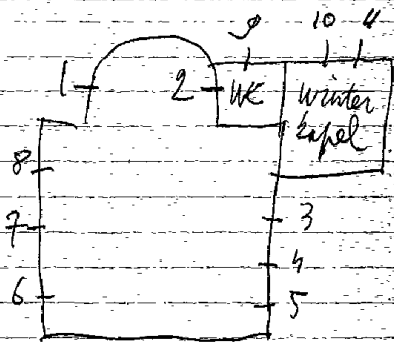 9 10 11
1 2 WK winter
kapel
8
7 3
4
6 5